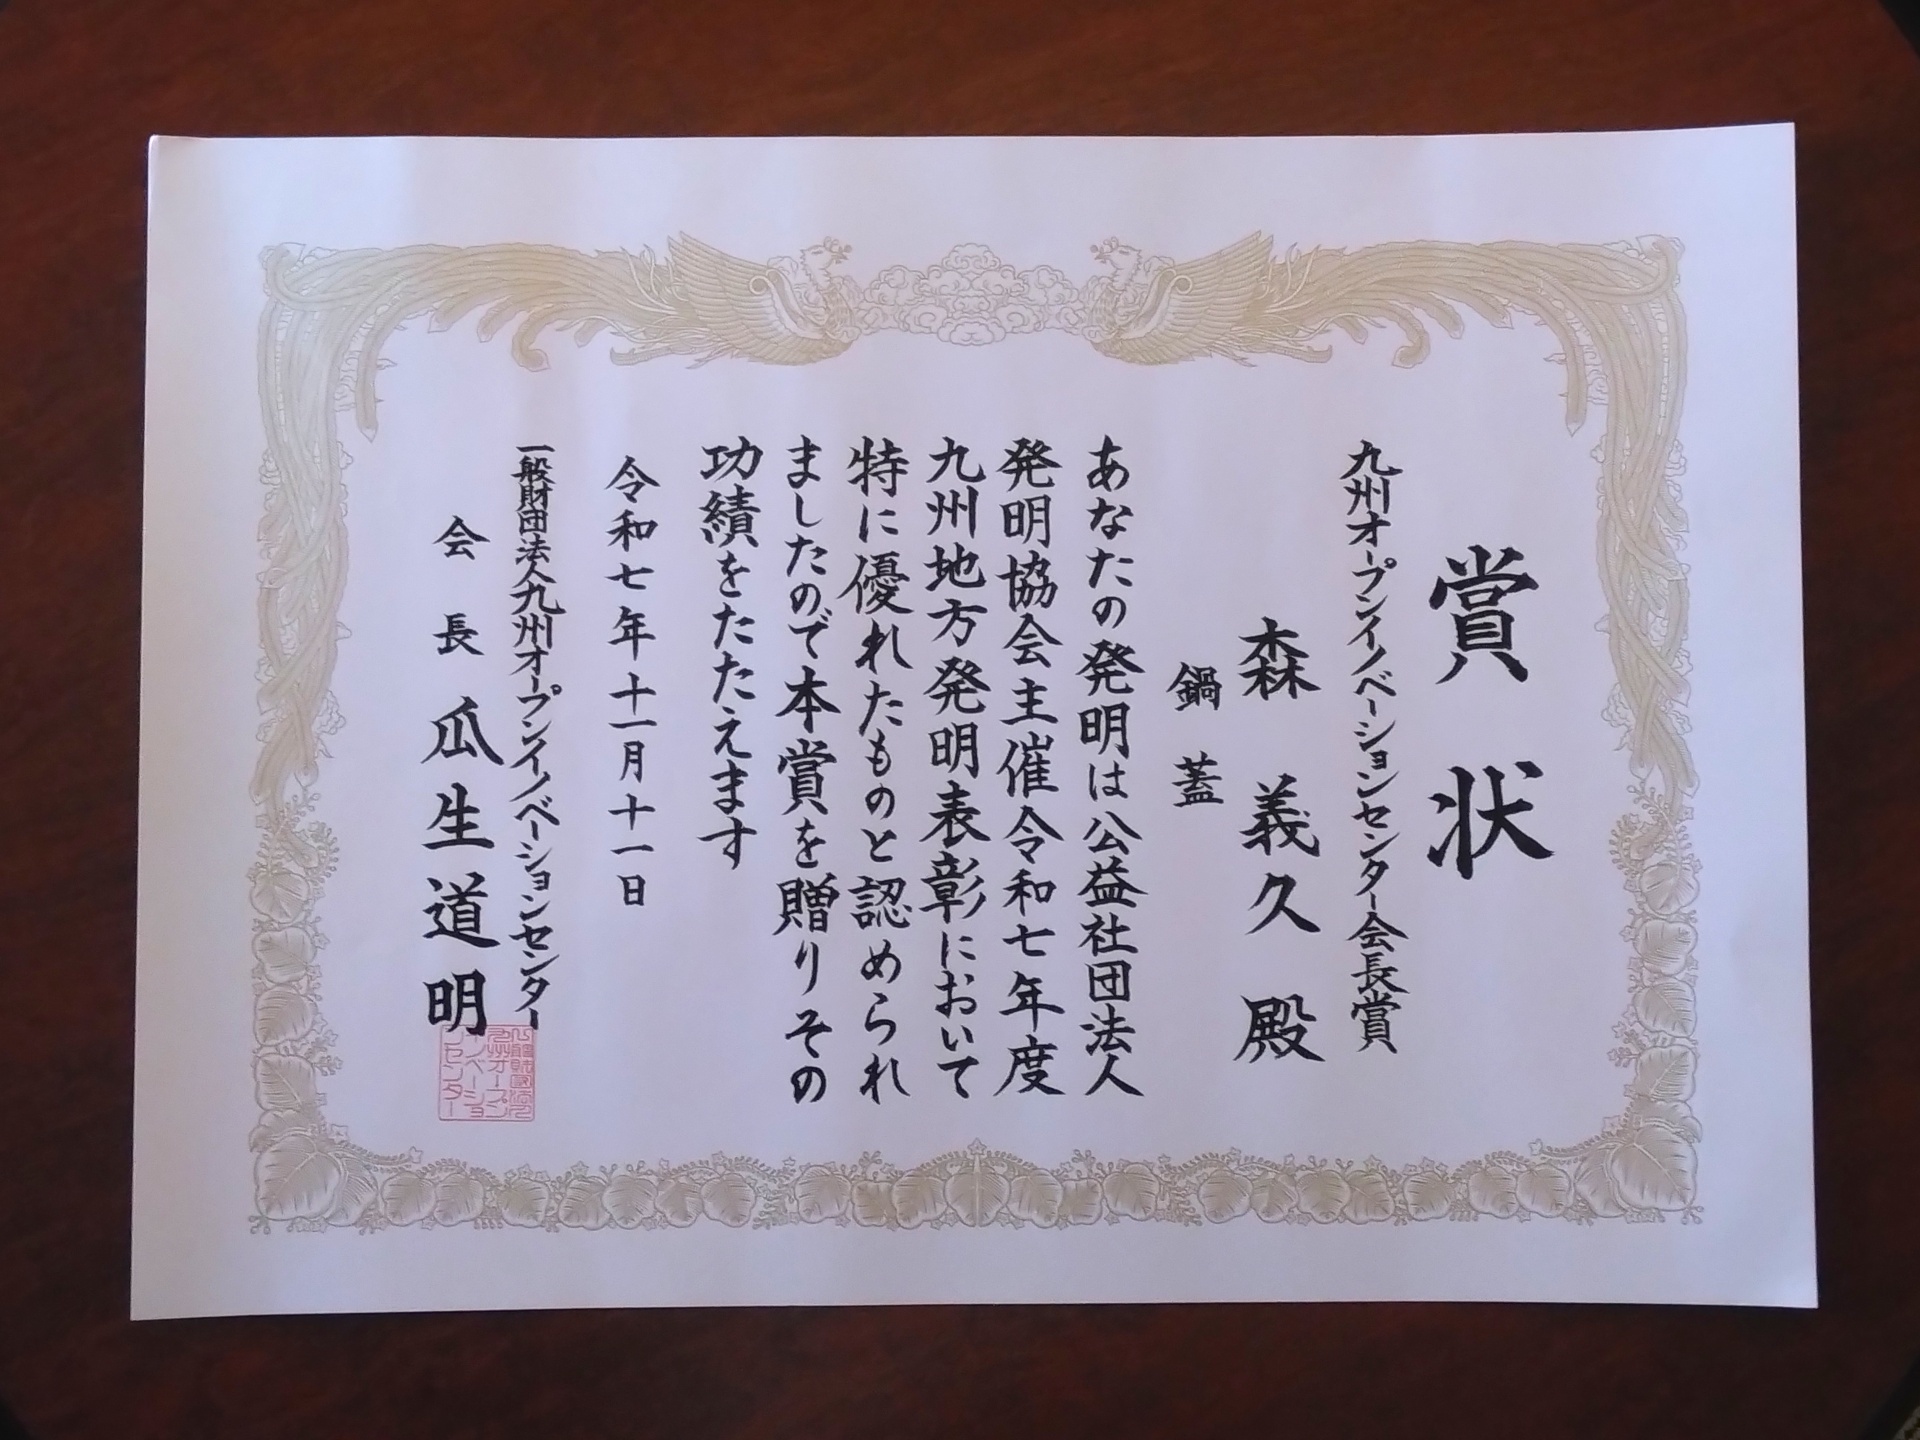 賞状
九州オープンイノベーションセンター会長賞
森義久殿
鍋蓋
あなたの発明は公益社団法人
発明協会主催令和七年度
九州地方発明表彰において
特に優れたものと認められ
ましたので本賞を贈りその
功績をたたえます
令和七年十一月十一日
一般財団法人九州オープンイノベーションセンター
会長 瓜生道明